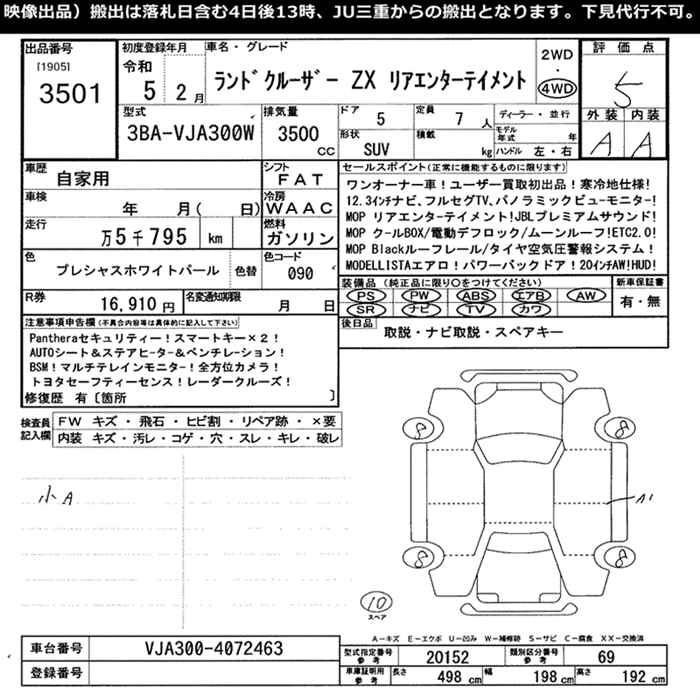 映像出品）搬出は落札日含む4日後13時、JU三重からの搬出となります。下見代行不可。
出品番号
[1905]
3501
初度登録年月
令和
5 2月
車名・グレード
ランドクルーザー ZX リアエンターテイメント
2WD
・
4WD
評価点
5
外装 内装
A A
型式
3BA-VJA300W
排気量
3500
CC
ドア 5
定員 7 人
ディーラー・並行
形状 SUV
積載 kg
モデル年式 年
ハンドル 左・右
車歴 自家用
シフト FAT
車検 年 月( 日)
冷房 WAAC
走行 万5千795 km
燃料 ガソリン
色 プレシャスホワイトパール 色替
色コード 090
R券 16,910円
名変通知期限 月 日
セールスポイント(正常に機能するものに限ります)
ワンオーナー車！ユーザー買取初出品！寒冷地仕様！
12.3インチナビ、フルセグTV、パノラミックビューモニター！
MOP リアエンターテイメント！JBLプレミアムサウンド！
MOP クールBOX/電動デフロック/ムーンルーフ！ETC2.0！
MOP Blackルーフレール/タイヤ空気圧警報システム！
MODELLISTAエアロ！パワーバックドア！20インチAW！HUD！
装備品 (純正品に限り○をつけてください)
PS PW ABS エアB AW
SR ナビ TV カワ
新車保証書
有・無
後日品 取説・ナビ取説・スペアキー
注意事項申告欄 (不具合内容等は具体的に記入して下さい)
Pantheraセキュリティー！スマートキー×2！
AUTOシート＆ステアヒーター＆ベンチレーション！
BSM！マルチテレインモニター！全方位カメラ！
トヨタセーフティーセンス！レーダークルーズ！
修復歴 有〔箇所 〕
検査員記入欄
FW キズ・飛石・ヒビ割・リペア跡・×要
内装 キズ・汚レ・コゲ・穴・スレ・キレ・破レ
小A
8 8
A1
8 8
10
スペア
A－キズ E－エクボ U－凹み W－補修跡 S－サビ C－腐食 XX－交換済
車台番号 VJA300-4072463
登録番号
型式指定番号参考 20152
類別区分番号参考 69
車庫証明用参考 長さ 498 cm 幅 198 cm 高さ 192 cm